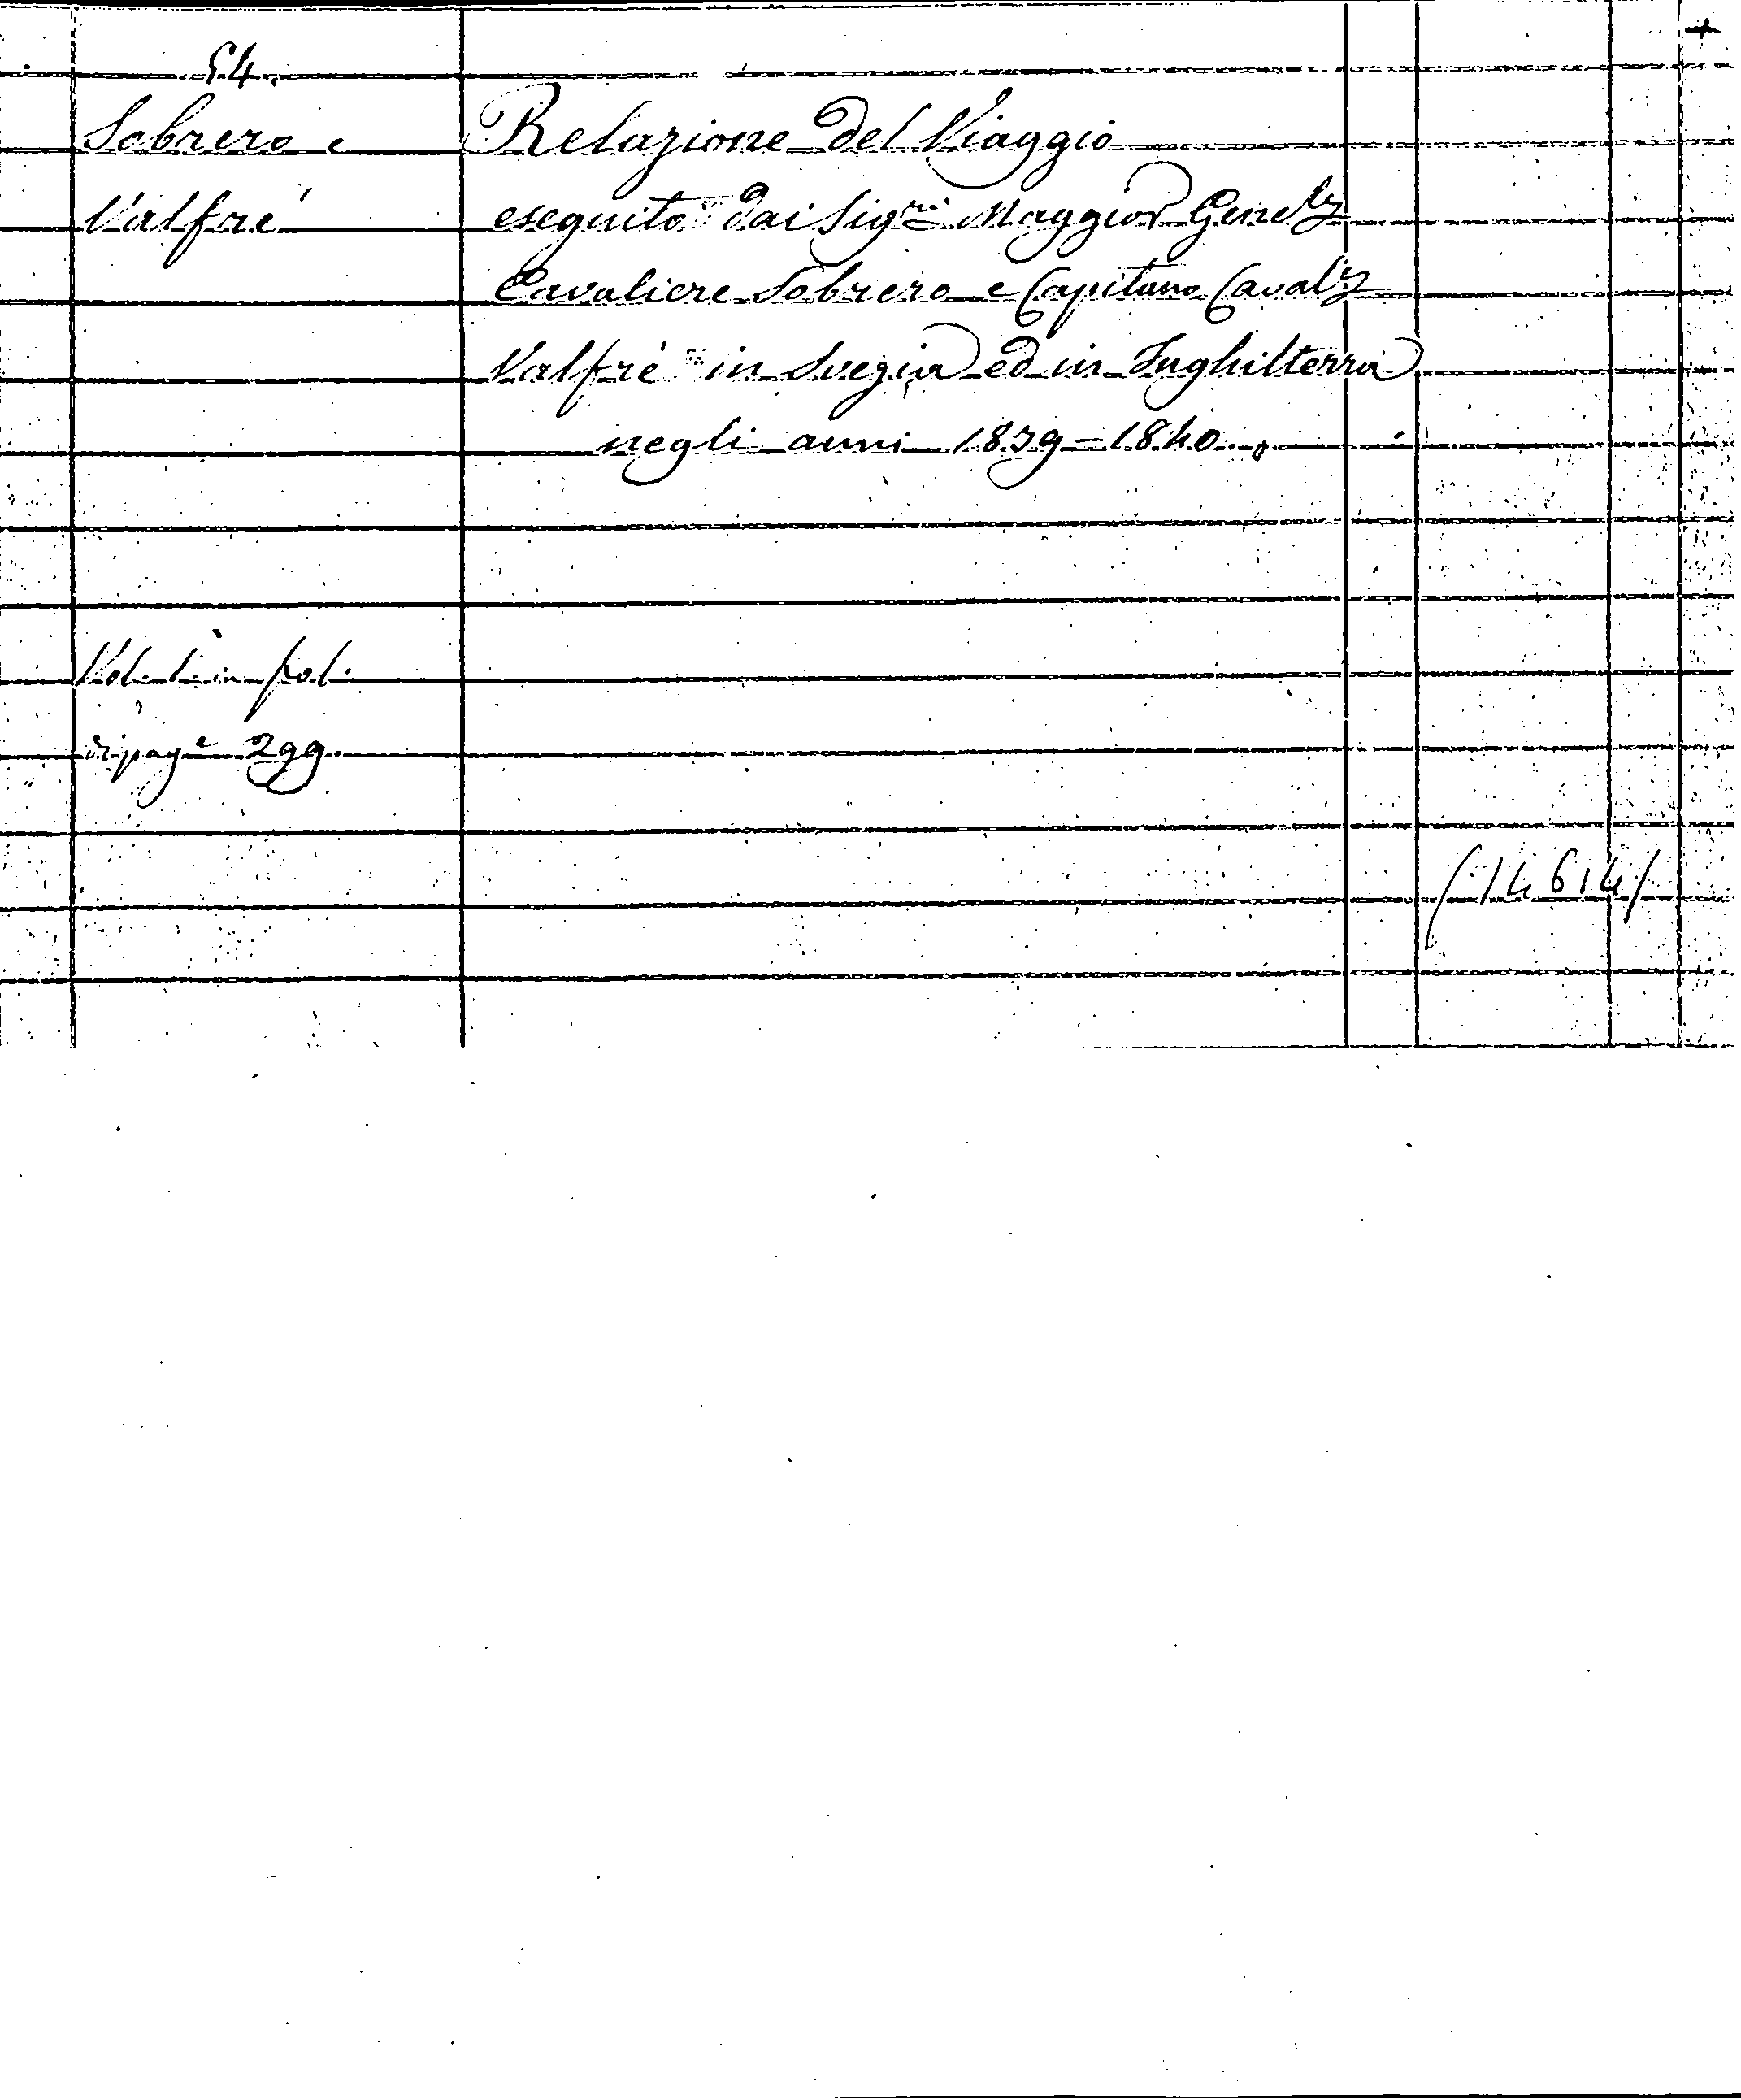 54.
Sobrero e
Valfré
Relazione del Viaggio
eseguito dai Sig.ri Maggior Gene.le
Cavaliere Sobrero e Capitano Caval.e
Valfrè in Svezia ed in Inghilterra
negli anni 1839=1840.
Vol. 1. in fol.
di pag.e 299.
(14614)